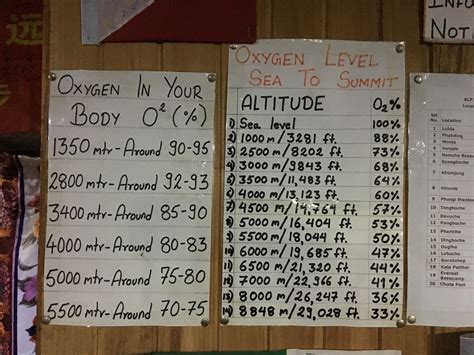 远
OXYGEN IN YOUR
BODY O² (%)
1350 mtr-Around 90-95
2800 mtr-Around 92-93
3400 mtr-Around 85-90
4000 mtr-Around 80-83
5000 mtr-Around 75-80
5500 mtr-Around 70-75
OXYGEN LEVEL
SEA TO SUMMIT
ALTITUDE O₂%
1) Sea level 100%
2) 1000 m/3281 ft. 88%
3) 2500 m/8202 ft. 73%
4) 3000 m/9843 ft. 68%
5) 3500 m/11,483 ft. 64%
6) 4000 m/13,123 ft. 60%
7) 4500 m/14,764 ft. 57%
8) 5000 m/16,404 ft. 53%
9) 5500 m/18,044 ft. 50%
10) 6000 m/19,685 ft. 47%
11) 6500 m/21,320 ft. 44%
12) 7000 m/22,966 ft. 41%
13) 8000 m/26,247 ft. 36%
14) 8848 m/29,028 ft. 33%
INFO
NOTI
No Location
1 Lukla
2 Phakding
3 Monjo
4 Jorsale
5 Namche